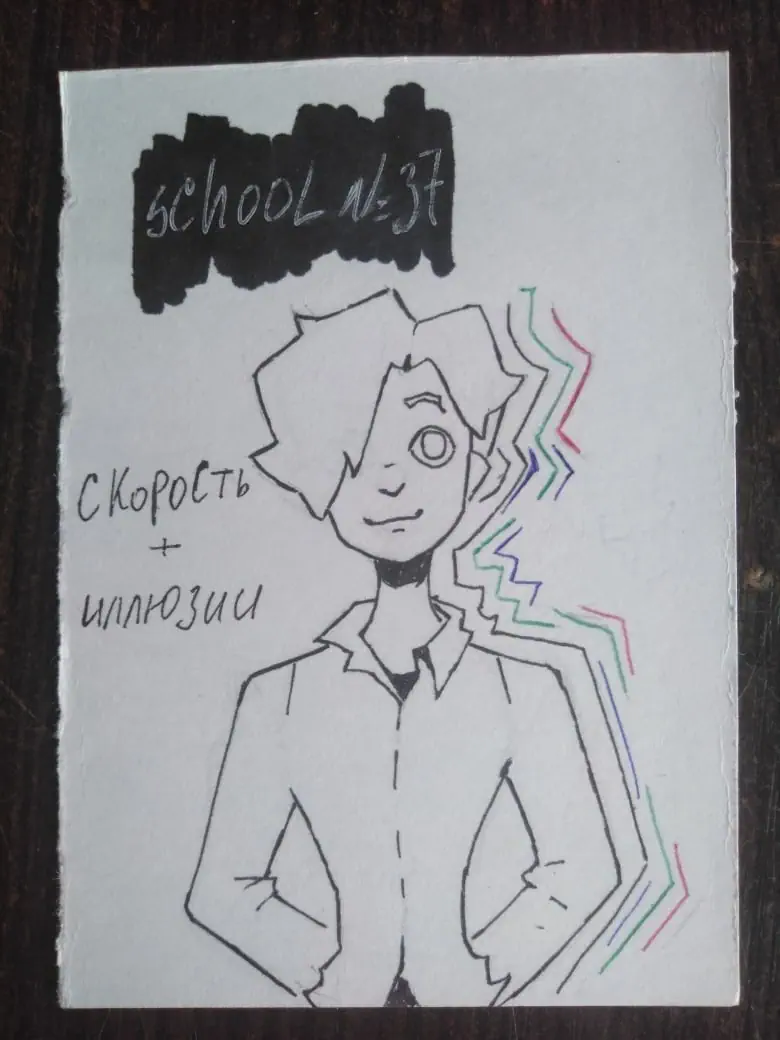 SCHOOL №37
СКОРОСТЬ
+
ИЛЛЮЗИИ